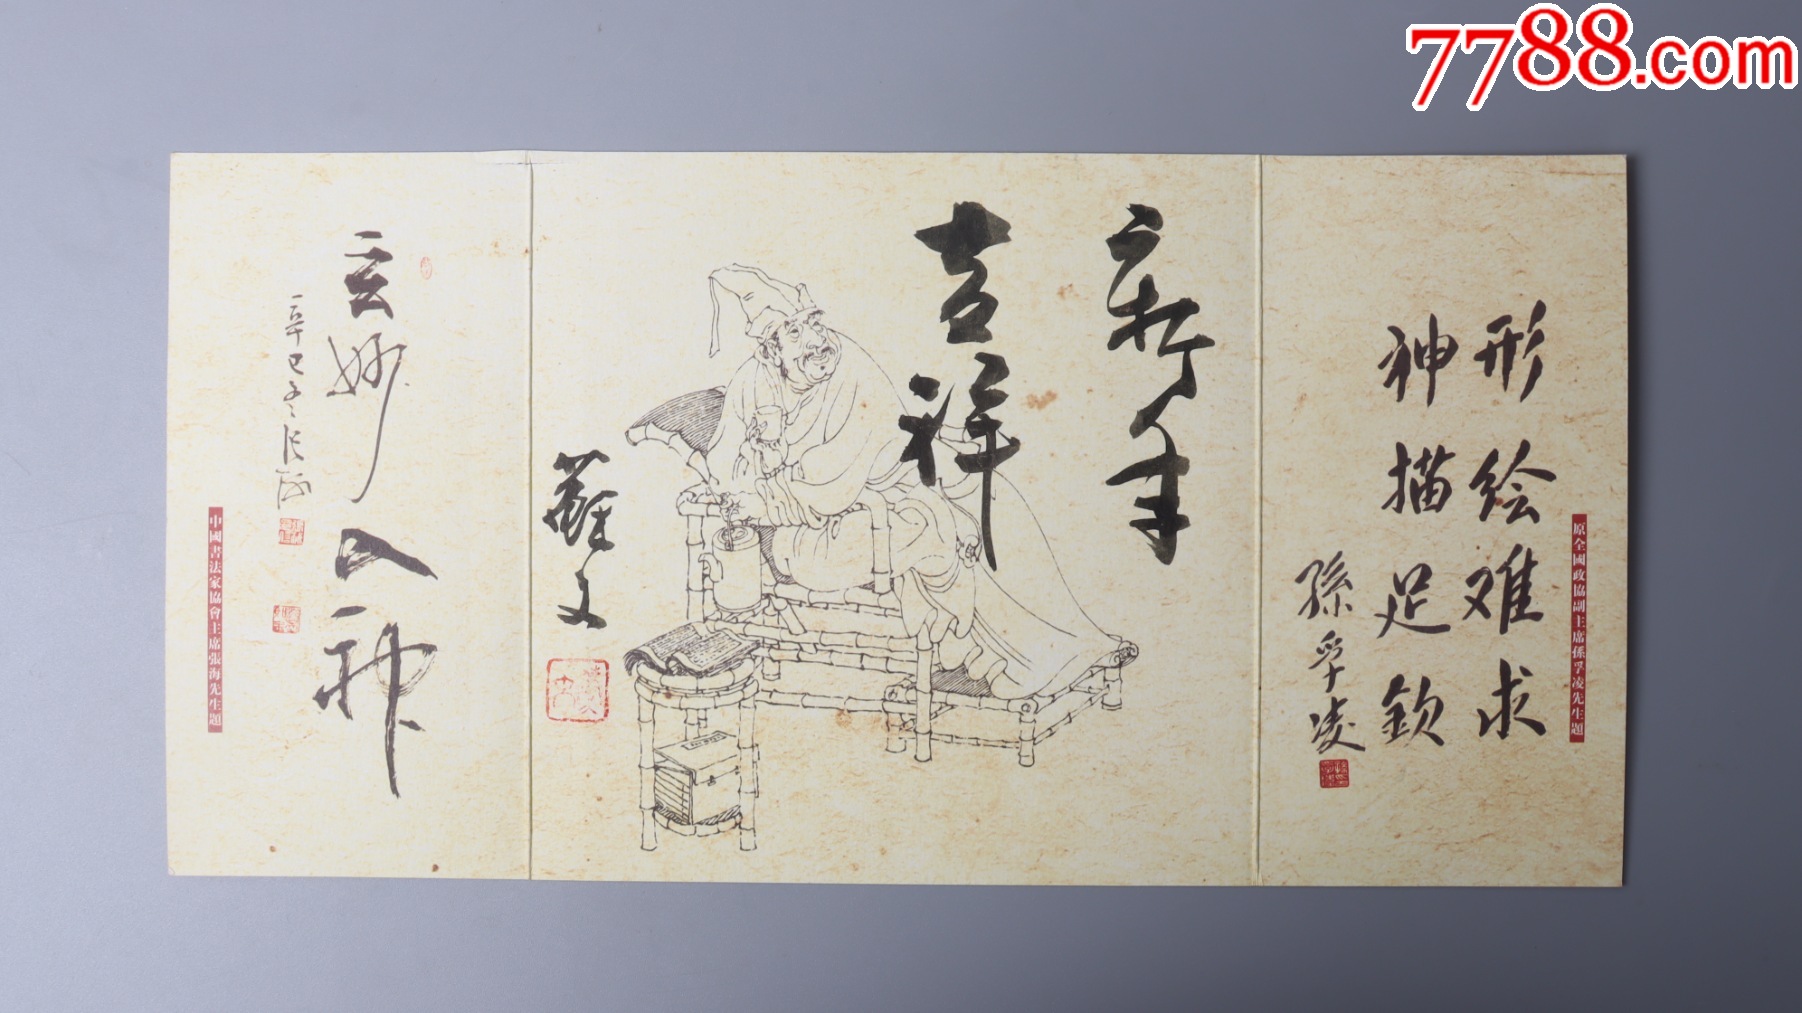 7788.com
原全國政協副主席孫孚凌先生題
形绘难求
神描足钦
孫孚凌
新年
吉祥
文
玄妙入神
辛巳冬张海
中國書法家協會主席張海先生題